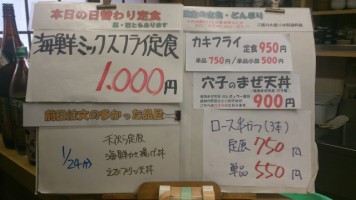 本日の日替わり定食
海鮮ミックスフライ定食
1.000円
カキフライ
定食950円
単品750円/単品小皿500円
穴子のまぜ天丼
900円
前回注文の多かった品目
1/24分
海鮮かき揚げ丼
エビフリッ天丼
ロース串かつ(3本)
定食750円
単品550円